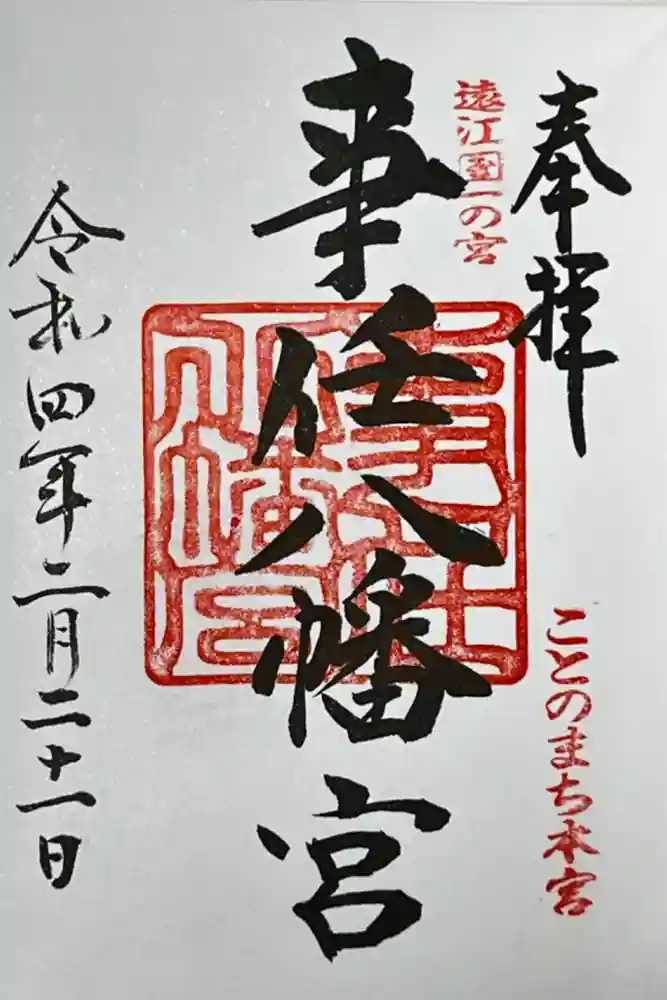 奉拝
遠江國一の宮
ことのまち本宮
事任八幡宮
事任八幡宮
令和四年二月二十一日